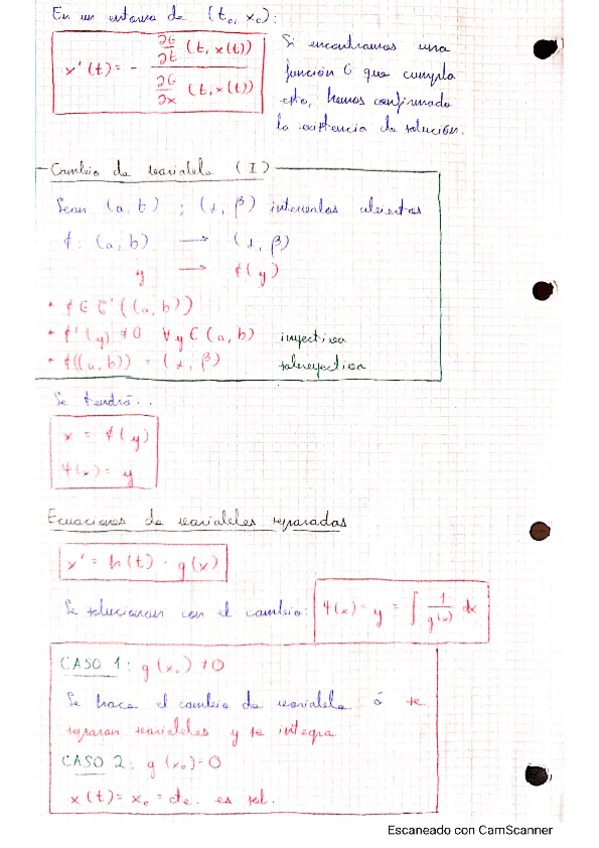 En un entorno de (t₀, x₀):
x'(t) = - ∂G/∂t (t, x(t)) / ∂G/∂x (t, x(t))
Si encontramos una
función G que cumpla
esto, hemos confirmado
la existencia de solución.
Cambio de variable (I)
Sean (a, b) ; (α, β) intervalos abiertos
φ: (a, b) → (α, β)
y → φ(y)
• φ ∈ C'((a, b))
• φ'(y) ≠ 0 ∀y ∈ (a, b) inyectiva
• φ((a, b)) = (α, β) sobreyectiva
Se tendrá...
x = φ(y)
ψ(x) = y
Ecuaciones de variables separadas
x' = h(t) · g(x)
Se solucionan con el cambio: ψ(x) = y = ∫ 1/g(x) dx
CASO 1: g(x₀) ≠ 0
Se hace el cambio de variable ó se
separan variables y se integra
CASO 2: g(x₀) = 0
x(t) = x₀ = cte. es sol.
Escaneado con CamScanner